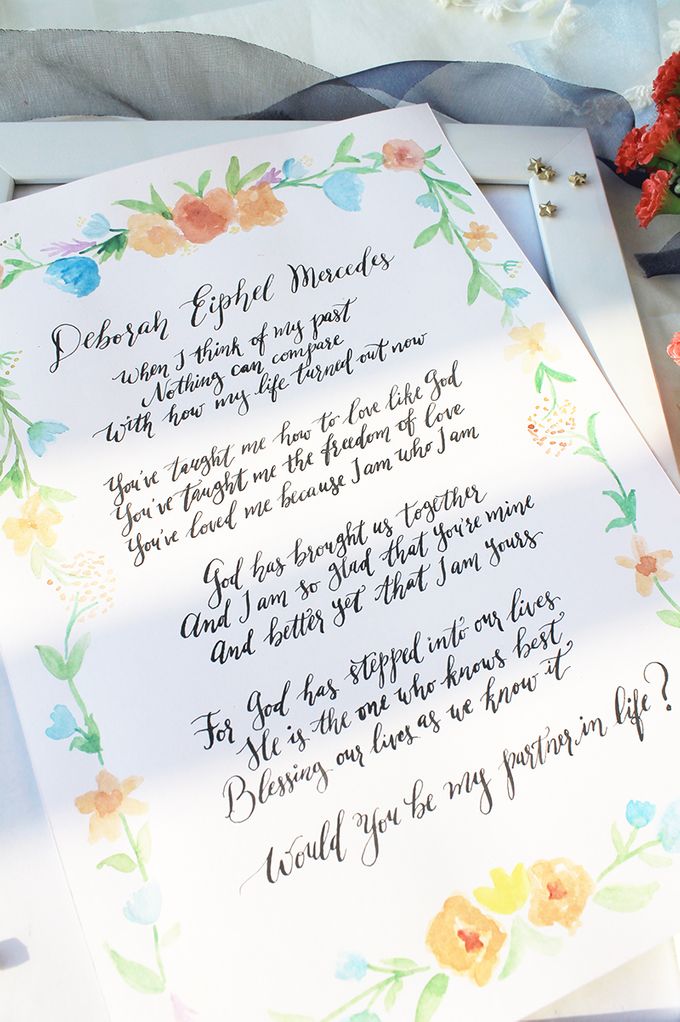 Deborah Eiphel Mercedes
When I think of my past
Nothing can compare
With how my life turned out now
You've taught me how to love like God
You've taught me the freedom of love
You've loved me because I am who I am
God has brought us together
And I am so glad that you're mine
And better yet that I am yours
For God has stepped into our lives
He is the one who knows best
Blessing our lives as we know it
Would you be my partner in life?